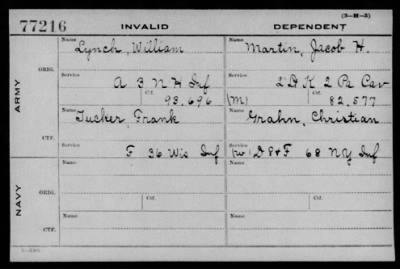 (3-M-3)
77216 INVALID DEPENDENT
Name Name
Lynch, William Martin, Jacob H.
ORIG.
Service Service
A 3 N H Inf 2d K, 2 Pa Cav
Ctf. Ctf.
93,696 (M) 82,577
ARMY
Name Name
Tucker Frank Grahn, Christian
CTF.
Service Service
F 36 Wis Inf (W) D & F 68 NY Inf
Name Name
ORIG.
Ctf. Ctf.
NAVY
Name Name
CTF.